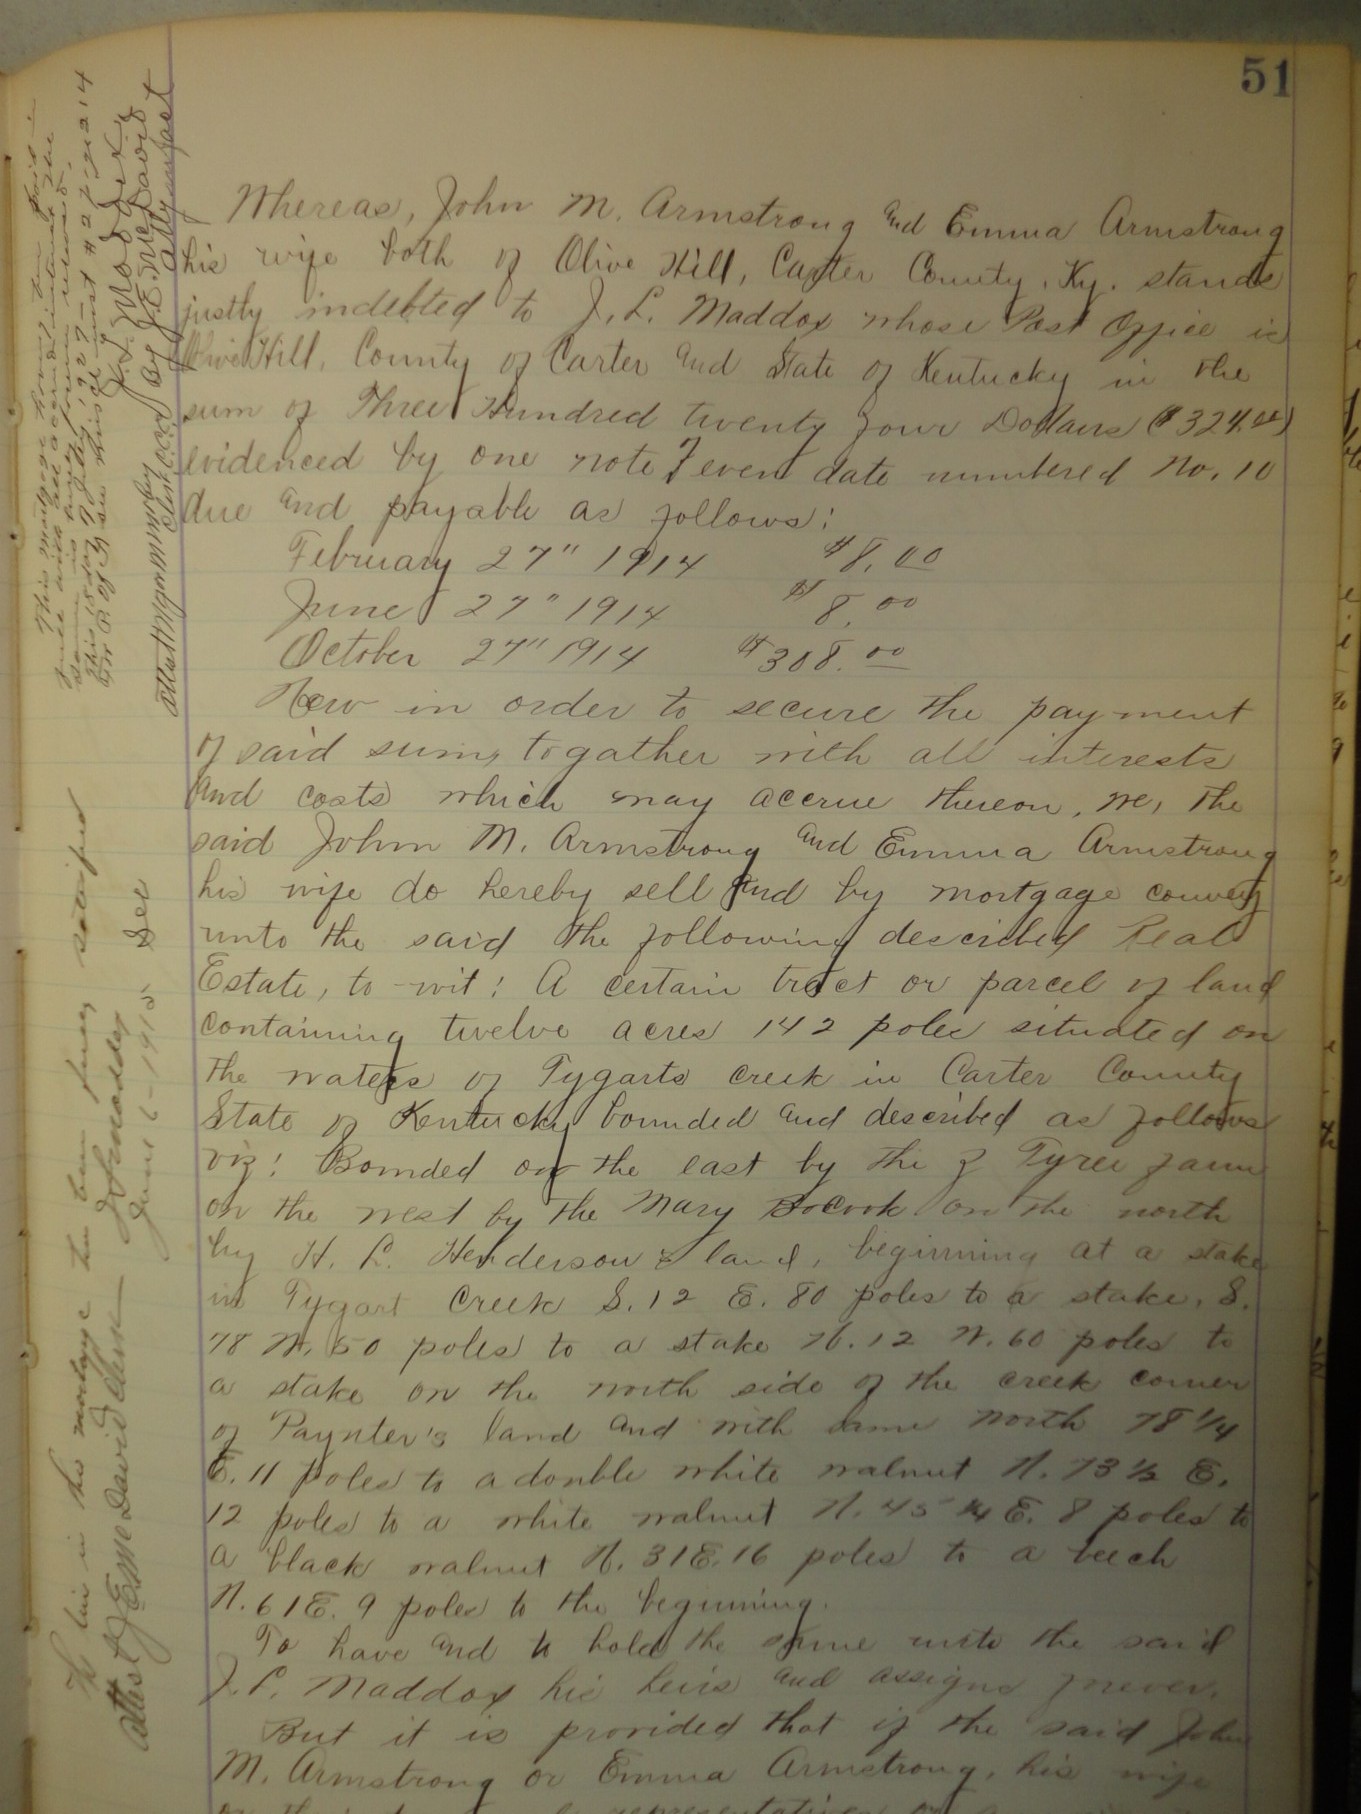 51
Whereas, John M. Armstrong and Emma Armstrong
his wife both of Olive Hill, Carter County, Ky. stands
justly indebted to J. L. Maddox whose Post Office is
Olive Hill, County of Carter and State of Kentucky in the
sum of Three Hundred twenty four Dollars ($324.00)
evidenced by one note of even date numbered No. 10
due and payable as follows:
February 27" 1914 $8.00
June 27" 1914 $8.00
October 27" 1914 $308.00
Now in order to secure the payment
of said sum, togather with all interests
and costs which may accrue thereon, we, the
said John M. Armstrong and Emma Armstrong
his wife do hereby sell and by mortgage convey
unto the said the following described Real
Estate, to-wit: A certain tract or parcel of land
containing twelve acres 142 poles situated on
the waters of Tygarts creek in Carter County
State of Kentucky bounded and described as follows
viz: Bounded on the east by the Tyree farm
on the west by the Mary Bocook on the north
by H. L. Henderson's land, beginning at a stake
in Tygart Creek S. 12 E. 80 poles to a stake, S.
78 W. 50 poles to a stake N. 12 W. 60 poles to
a stake on the north side of the creek corner
of Paynter's land and with same North 78 1/4
E. 11 poles to a double white walnut N. 73 1/2 E.
12 poles to a white walnut N. 45 1/4 E. 8 poles to
a black walnut N. 31 E. 16 poles to a beech
N. 61 E. 9 poles to the beginning.
To have and to hold the same unto the said
J. L. Maddox his heirs and assigns forever.
But it is provided that if the said John
M. Armstrong or Emma Armstrong, his wife
representatives
This mortgage having been paid in
full with all accrued interest the
same is fully released.
This 18 day of July 1927
J. L. Maddox
By J. E. McDavid
Atty in fact
Attest
The lien in this mortgage has been fully satisfied
J L Maddox
June 6 - 1915
Attest J E McDavid Clerk